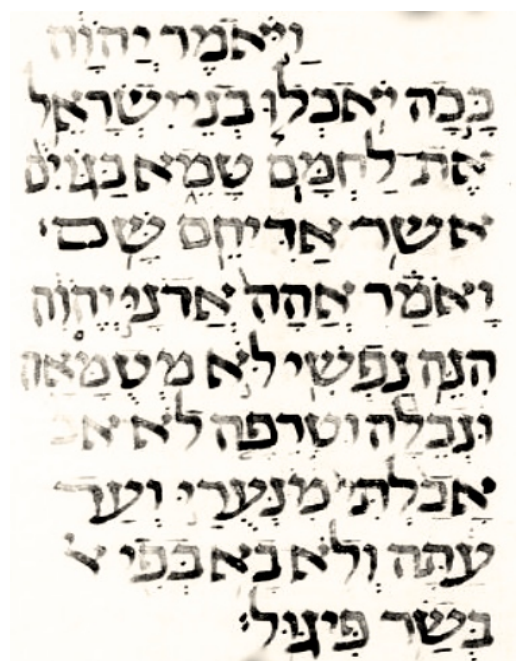 וַיֹּאמֶר יְהוָֹה
כָּכָה יֹאכְלוּ בְנֵי יִשְׂרָאֵל
אֶת־לַחְמָם טָמֵא בַּגּוֹיִם
אֲשֶׁר אַדִּיחֵם שָׁם׃
וָאֹמַר אֲהָהּ אֲדֹנָי יֱהֹוִה
הִנֵּה נַפְשִׁי לֹא מְטֻמָּאָה
וּנְבֵלָה וּטְרֵפָה לֹא א
אָכַלְתִּי מִנְּעֻרַי וְעַד
עַתָּה וְלֹא בָא בְּפִי
בְּשַׂר פִּיגּוּל׃